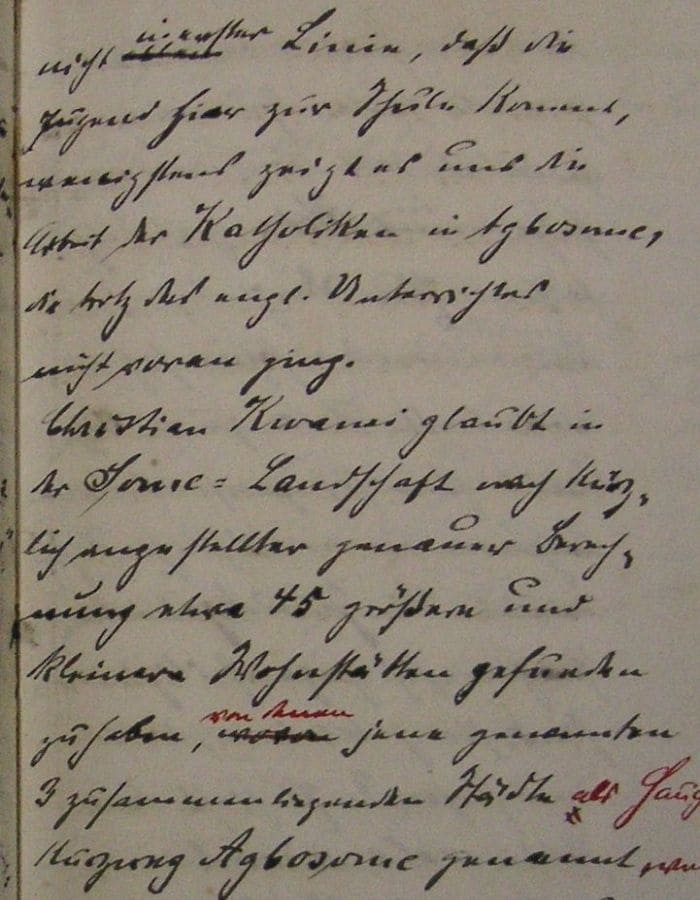 nicht in erster Linie, daß die
Jugend hier zur Schule kommt,
wenigstens zeigt es uns die
Arbeit der Katholiken in Agbosome,
die trotz des engl. Unterrichtes
nicht voran ging.
Christian Kwami glaubt in
der Some=Landschaft nach kürz„
lich angestellter genauer Berech„
nung etwa 45 größere und
kleinere Wohnstätten gefunden
zu haben, von denen jene genannten
3 zusammenliegenden Städte als
kurzweg Agbosome genannt